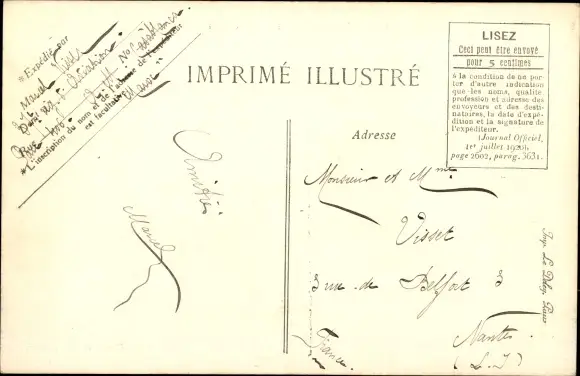 *Expédié par
Marcel
*L'inscription du nom et de l'adresse de l'expéditeur
est facultative.
IMPRIMÉ ILLUSTRÉ
LISEZ
Ceci peut être envoyé
pour 5 centimes
à la condition de ne por-
ter d'autre indication
que les noms, qualité,
profession et adresse des
envoyeurs et des desti-
nataires, la date d'expé-
dition et la signature de
l'expéditeur.
(Journal Officiel,
1er juillet 1920),
page 2602, parag. 3631.
Adresse
Amitiés
Marcel
Monsieur et Mme
Visset
3 rue de Belfort 3
Nantes
(L. I)
France
Imp. Le Deley, Paris